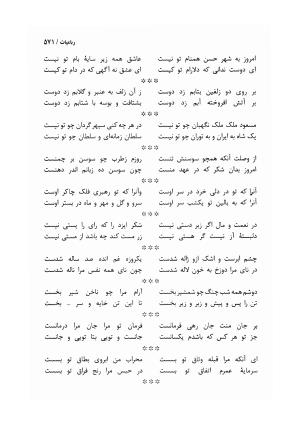 رباعیات / ۵۷۱
امروز به شهر حسن همنام تو نیست عاشق همه زیر سایهٔ بام تو نیست
ای دوست ندانی که دلارام تو کیست ای عشق نه آگهی که در دام تو کیست
***
بر روی دو زلفین بتابم زد دوست ز آن زلف به عنبر و گلابم زد دوست
بر آتش افروخته آبم زد دوست بشتافت و بوسه با شتابم زد دوست
***
مسعود ملک ملک نگهبان چو تو نیست در هر چه کنی سپهر گردان چو تو نیست
یک شاه به ایران و به توران چو تو نیست سلطان زمانه‌ای و سلطان چو تو نیست
***
از وصلت آنکه همچو سوسنش تنست روزم زطرب چو سوسن بر چمنست
امروز بدان شکر که در عهد منست چون سوسن ده زبانم اندر دهنست
***
آنرا که تو در دلی خرد در سر اوست وآنرا که تو رهبری فلک چاکر اوست
آنرا که به بالین تو یکشب سر اوست سرو و گل و مهر و ماه در بستر اوست
***
در نعمت و مال اگر زبر دستی نیست شکر ایزد را که رای را پستی نیست
دلبستهٔ آز نیست گر هستی نیست زر مست کند چه باشد از مستی نیست
***
چشم ابرست و اشک ازو ژاله شدست یکروزه غم انده صد ساله شدست
در نای مرا دوزخ به خون لاله شدست چون نای همه نفس مرا ناله شدست
***
دوشم همه شب چنگ چو شمشیر بخست آرام مرا چو ناخن شیر بخست
تن را پس و پیش و زیر و زبر بخست تا این تن خایه و سر .. بخست
***
بر جان منت جان رهی فرمانست فرمان تو مرا جان مرا درمانست
جز تو هر کس که باشدم یکسانست جانت و توبی بتا توبی و جانت
***
ای آنکه مرا قبله وثاق تو بست محراب من ابروی بطاق تو بست
سرمایهٔ عمرم اتفاق تو بست در حبس مرا رنج فراق تو بست
***